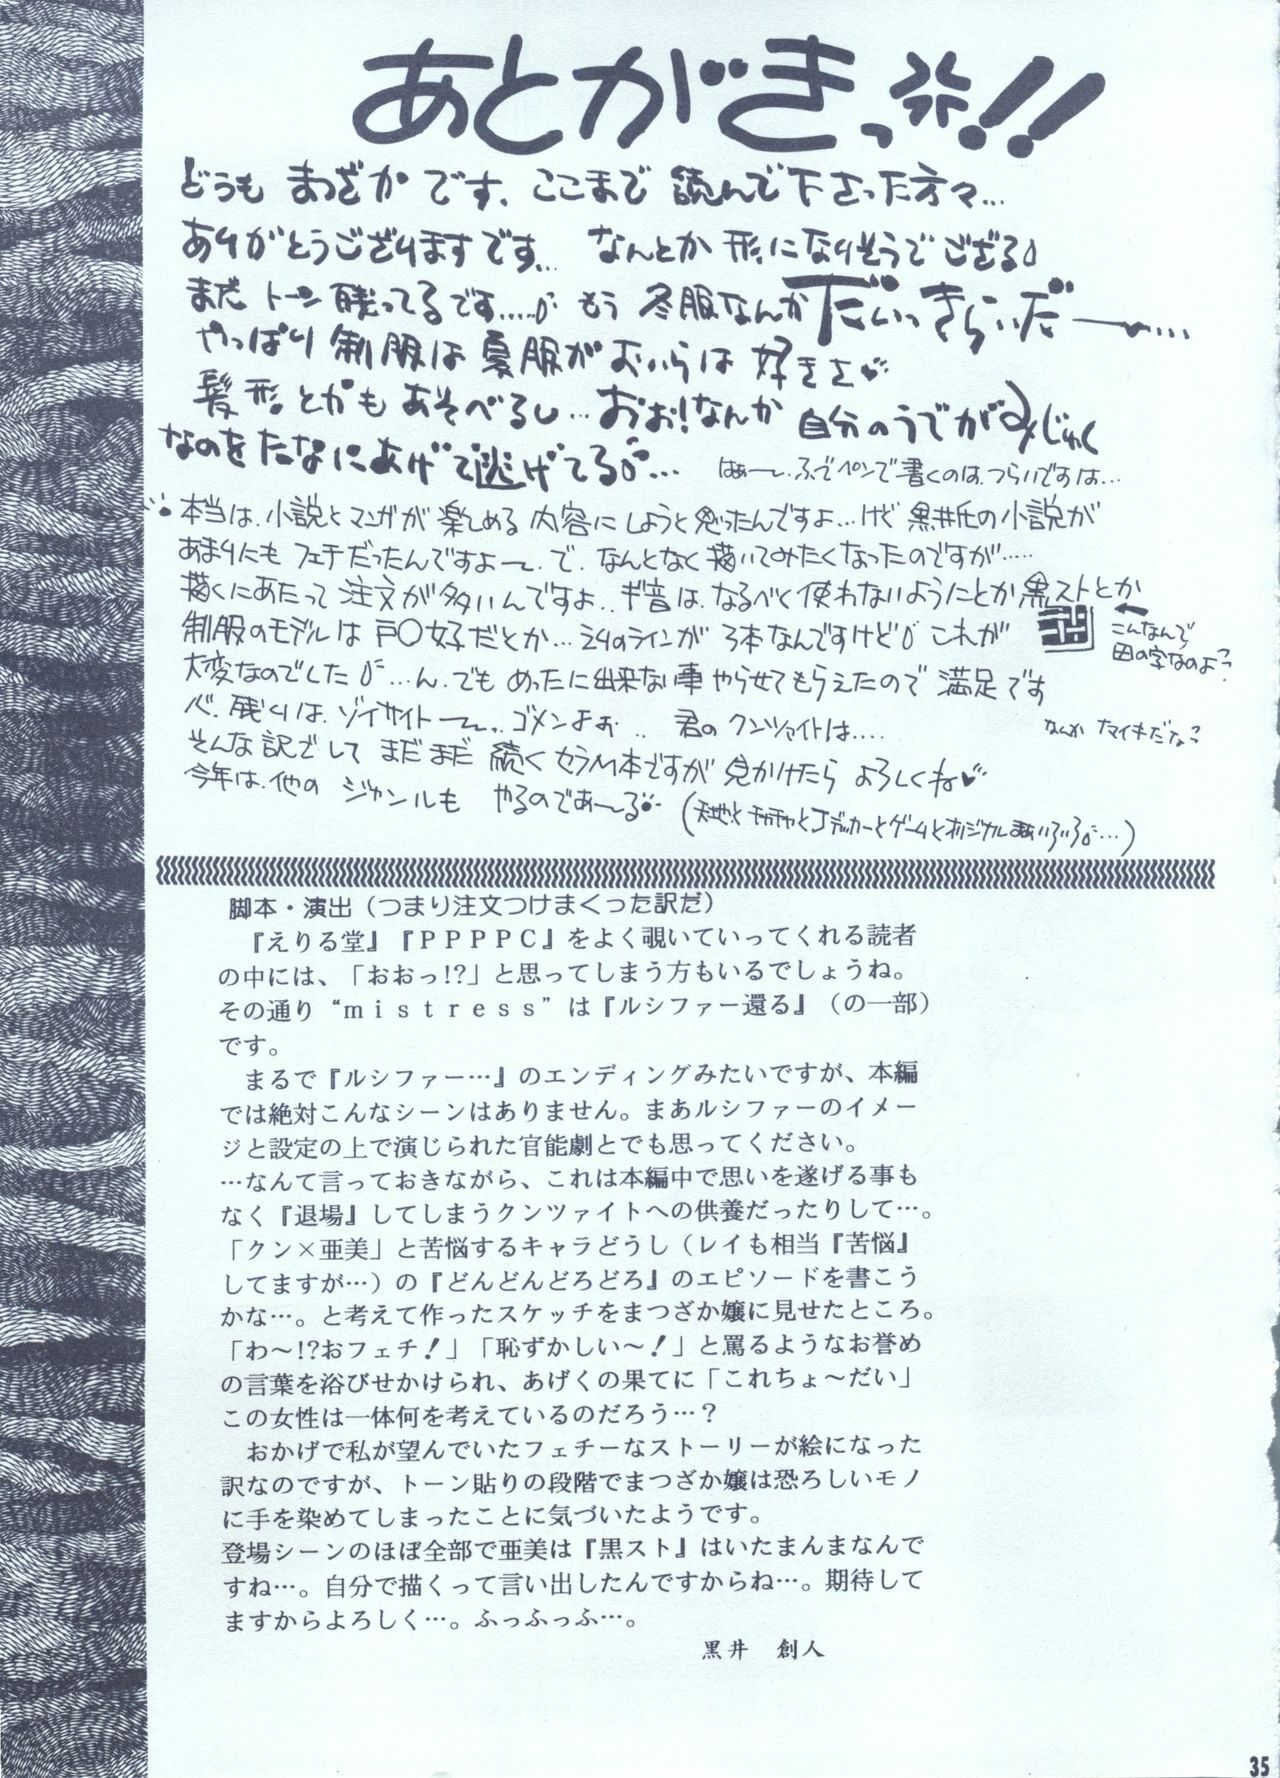 あとがきっ!!
どうも まつざかです、ここまで 読んで下さった方々…
ありがとうございますです… なんとか 形になりそうでござる
まだ トーン 残ってるです…… もう 冬服なんか だいっきらいだーー…
やっぱり 制服は 夏服が おいらは 好きさ♥
髪形とかも あそべるし… おお!なんか 自分のうでが みじゅく
なのをたなにあげて逃げてる… はぁー、ふでペンで書くのは、つらいですは…
本当は、小説とマンガが 楽しめる 内容にしようと思ったんですよ…けど 黒井氏の小説が
あまりにも フェチだったんですよー で、なんとなく描いてみたくなったのですが……
描くにあたって 注文が 多いんですよ、ギ音は、なるべく使わないようにとか 黒ストとか
制服のモデルは 戸〇女子だとか… えりのラインが 3本なんですけど これが
こんなんで
田の字なのよ
大変なのでした …ん、でも めったに出来ない事 やらせてもらえたので 満足です
心残りは、ゾイサイトー ゴメンよぉ 君の クンツァイトは…
なんか ナマイキだな
そんな訳でして まだまだ 続く セラM本ですが 見かけたら よろしくね♥
今年は、他の ジャンルも やるのであーる
(天地と Jデッカーとゲームとオリジナル いろいろ…)
脚本・演出（つまり注文つけまくった訳だ）
『えりる堂』『ＰＰＰＰＣ』をよく覗いていってくれる読者
の中には、「おおっ!?」と思ってしまう方もいるでしょうね。
その通り“ｍｉｓｔｒｅｓｓ”は『ルシファー還る』（の一部）
です。
まるで『ルシファー…』のエンディングみたいですが、本編
では絶対こんなシーンはありません。まあルシファーのイメー
ジと設定の上で演じられた官能劇とでも思ってください。
…なんて言っておきながら、これは本編中で思いを遂げる事も
なく『退場』してしまうクンツァイトへの供養だったりして…。
「クン×亜美」と苦悩するキャラどうし（レイも相当『苦悩』
してますが…）の『どんどんどろどろ』のエピソードを書こう
かな…。と考えて作ったスケッチをまつざか嬢に見せたところ。
「わ～!?おフェチ！」「恥ずかしい～！」と罵るようなお誉め
の言葉を浴びせかけられ、あげくの果てに「これちょ～だい」
この女性は一体何を考えているのだろう…？
おかげで私が望んでいたフェチーなストーリーが絵になった
訳なのですが、トーン貼りの段階でまつざか嬢は恐ろしいモノ
に手を染めてしまったことに気づいたようです。
登場シーンのほぼ全部で亜美は『黒スト』はいたまんまなんで
すね…。自分で描くって言い出したんですからね…。期待して
ますからよろしく…。ふっふっふ…。
黒井　創人
35